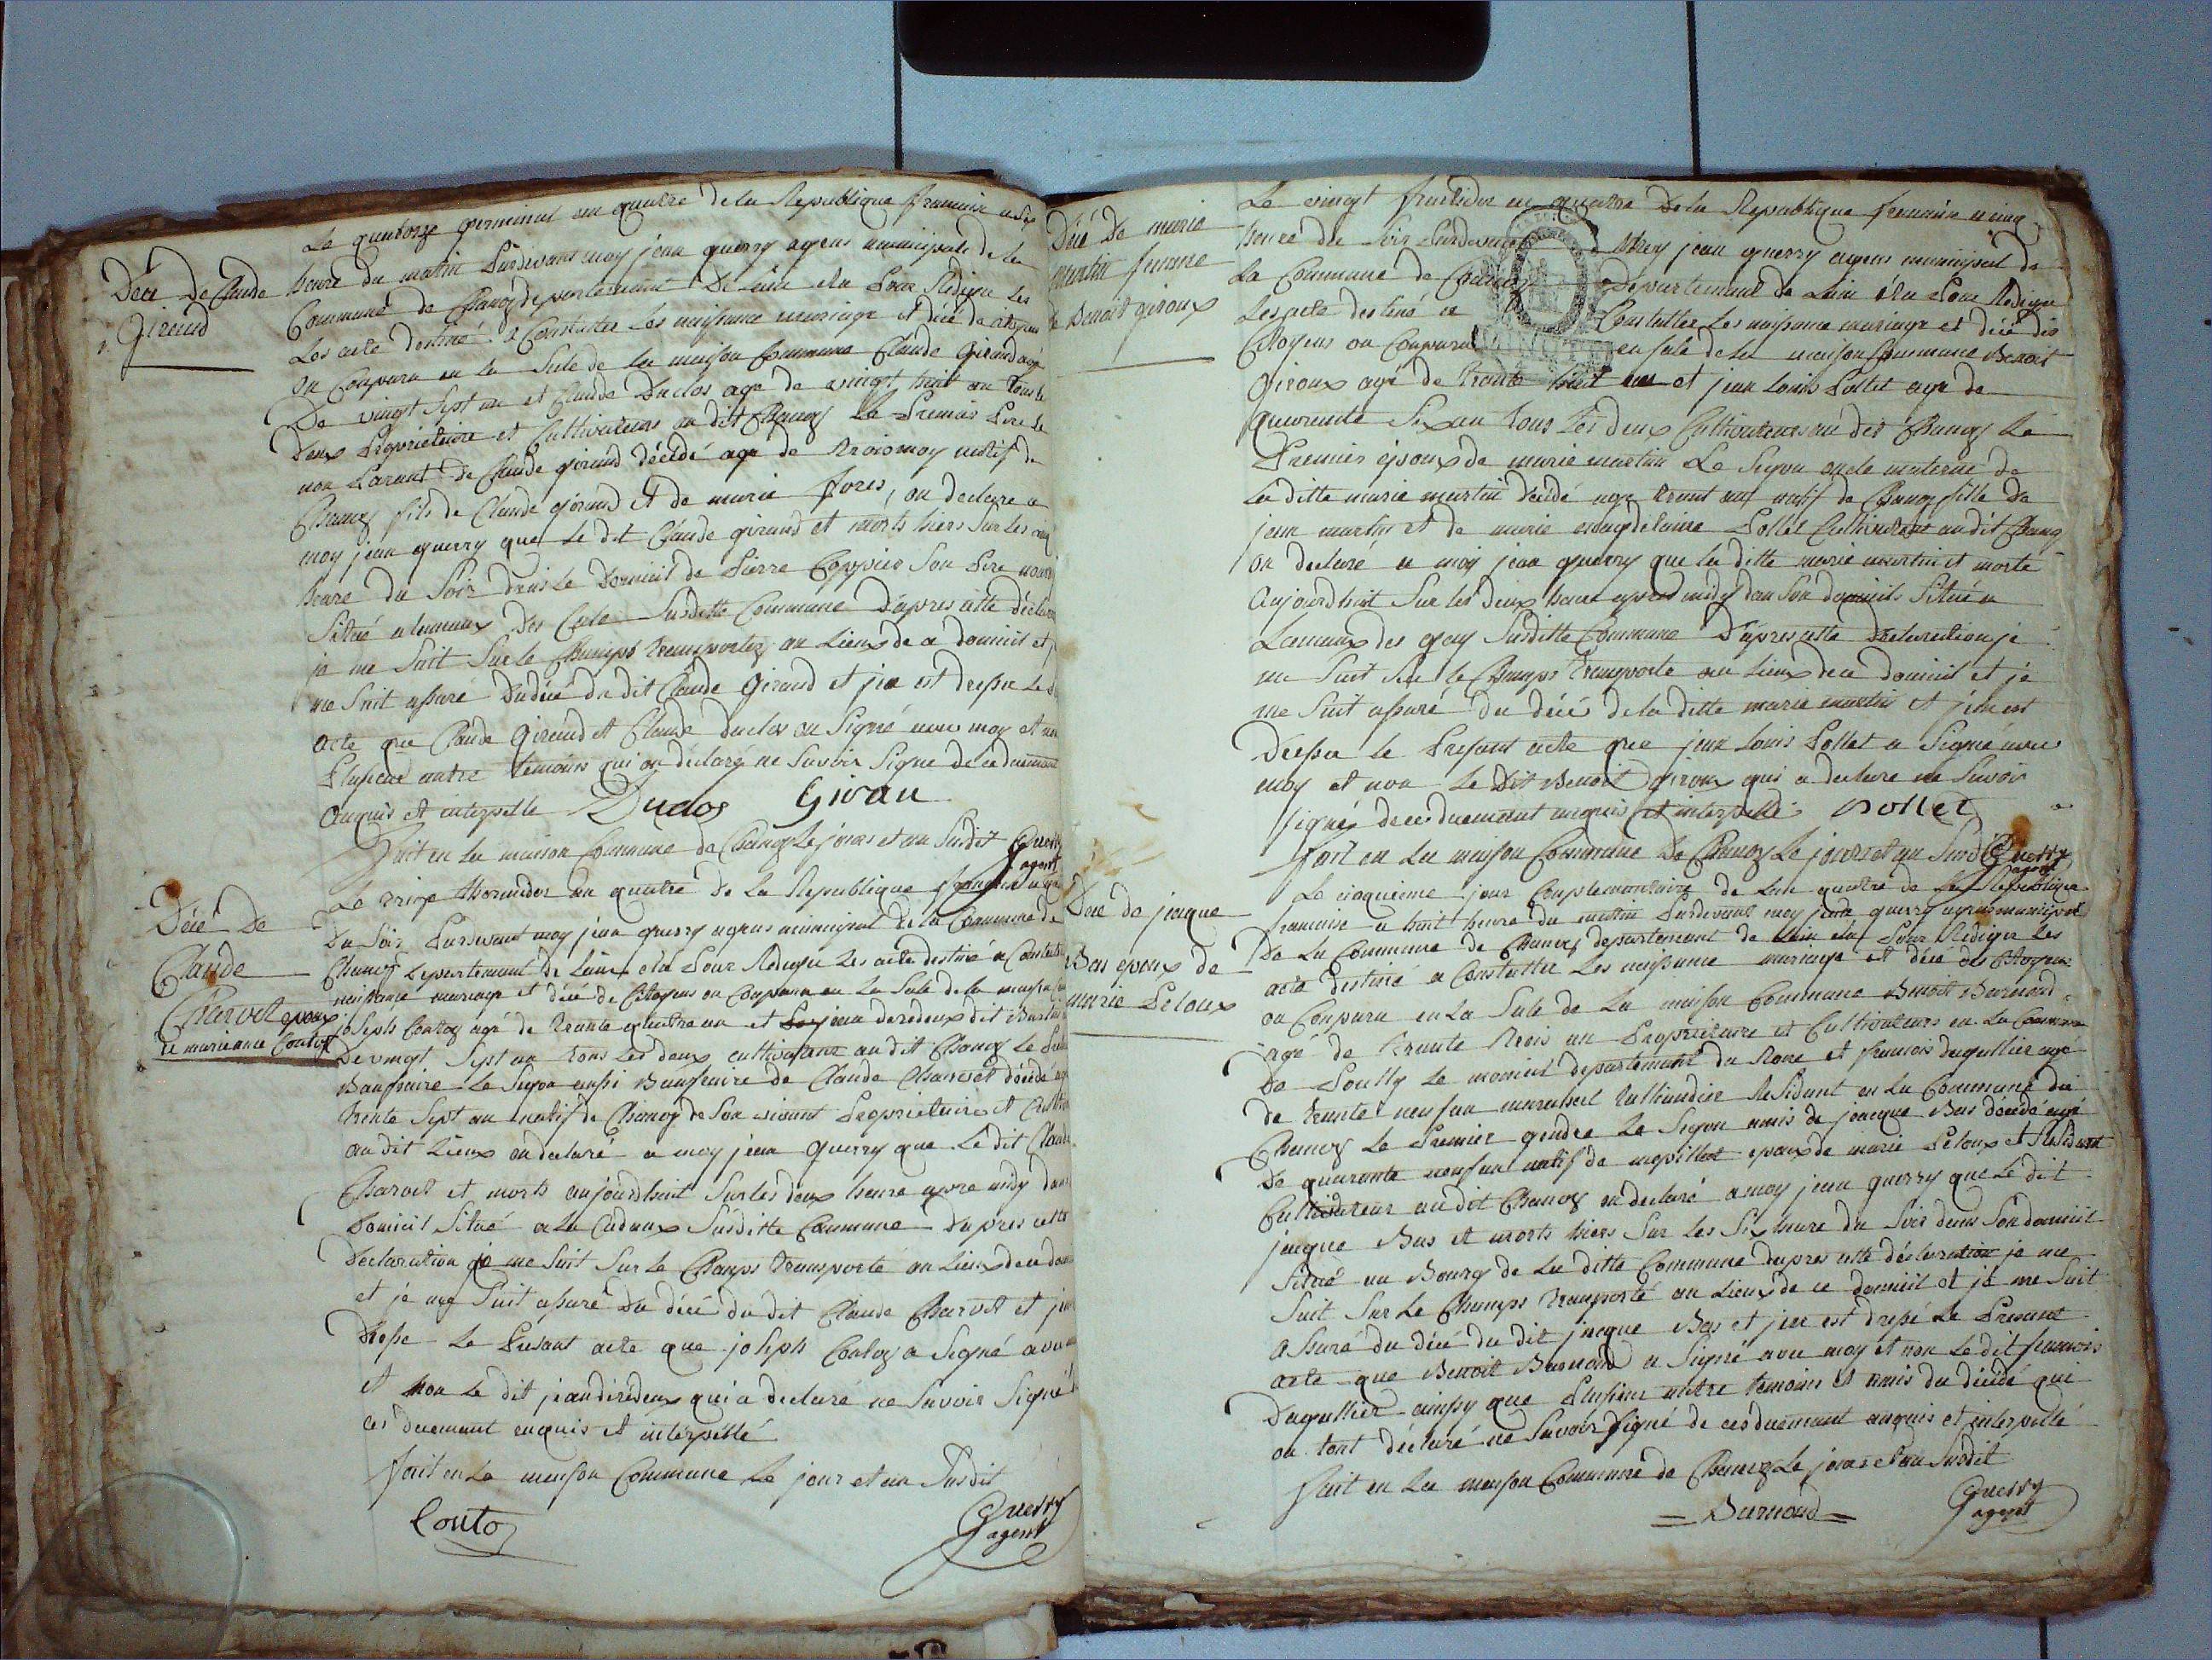 Décé De Claude
Giraud
Le quatorze germinal an quatre de la Republique francaise a six
heure du matin Pardevant moy jean querry agens municipale de la
Commune de Chanoz departement De Lain elu Pour Rediger Les
Les acte destiné a Constater Les naissance mariage et décé de citoyens
on Conparu en la Sale de la maison Commune Claude Giraud agé
De vingt Sept an et Claude Duclos age de vingt huit an tous le
Deux Propriétaire et Cultivateurs au dit Chanoz Le Premier Pere le
non Parant de Claude giraud décédé age de trois moy natif de
Chanoz fils de Claude giraud et de marie fores, on declare a
moy jean querry que le dit Claude giraud et morts hiers Sur les cinq
heure du Soir dans le Domicil de Pierre Coppier Son Pere nouri
Situé a lamaux Des Cale Susditte Commune Dapres cette déclara
je me Suit Sur le Champs transportez au Lieux de ce domicil et
me Suit assuré Du décé du dit Claude Giraud et jen est dresse Le
acte que Claude Giraud et Claude Duclos on Signé avec moy et non
Plusieur autre temoins qui on déclaré ne Savoir Signe de ce duemant
anquis et interpelle Duclos Girau
Fait en la maison Commune de Chanoz Le jour et an Susdit Querry
agent
Décé De
Claude
Charvet epoux
de marianne Contoz
Le treize thermidor an quatre de la Republique francaise a
Du Soir Pardevant moy jean querry agens municipal de la Commune de
Chanoz Departement de Lain elu Pour Rediger Les acte destiné a Constater
naissance mariage et décé de Citoyens on Conparu en La Sale de la maison
joseph Contoz agé de trante quatre an et jean deredeux dit
De vingt Sept an tous Les deux cultivateur au dit Chanoz Le
Baufraire Le Segon aussi Baufraire de Claude Charvet décédé
trente Sept an natif de Chanoz de Son vivant Propriétaire et
au dit Lieux on declaré a moy jean querry que Le dit Claude
Charvet et morts aujourdhuit Sur les deux heure apre midy dans
Domicil Situé a La Cadeaux Susditte Commune Dapres cette
Déclaration je me Suit Sur Le Champs transporté au Lieux de ce dom
et je me Suit assuré Du décé du dit Claude Charvet et jen
Dresse Le Presant acte que joseph Contoz a Signé avec
et non Le dit jean dérédeux qui a declaré ne Savoir Signé
ces duemant anquis et interpellé
fait en La maison Commune Le jour et an Susdit
Conto
Querry
agent
Décé De marie
martin femme
de Benoit giroux
Le vingt fructidor an quatre De la Republique francaise a cinq
heure du Soir Pardevant Moy jean querry agens municipal de
La Commune de Chanoz Departement de Lain élu Pour Rediger
Les acte destiné a Constatter Les naissance mariage et décé des
Citoyens on Conparu en Sale de la maison Commune Benoit
Giroux agé de trante huit an et jean Louis Pollet age de
quarante Six an tous Les deux Cultivateurs au dit Chanoz Le
Premier époux de marie martin Le Segon oncle materne de
La ditte marie martin décédé age trant an natif de Chanoz fille De
jean martin et de marie magdelaine Pollet Cultivateur au dit Chanoz
on declaré a moy jean querry que la ditte marie martin et morte
Aujourdhuit Sur les deux heure apres midy dan Son domicils Situé a
Lamaux des gay Susditte Commune Dapres cette Déclaration je
me Suit Sur le Champs transporte au Lieux de ce domicil et je
me Suit assuré du décé de la ditte marie martin et jen est
Dressa le Presant acte que jean Louis Pollet a Signé avec
moy et non Le Dit Benoit giroux qui a declare ne Savoir
Signé de ce duemant anquis et interpellé. Pollet
fait en La maison Commune De Chanoz Le jour et an Susdit Querry
agent
Décé de jacque
Bas epoux de
marie Peloux
Le cinquieme jour Complementaire de Lan quatre de la Republique
francaise a huit heure du matin Pardevant moy jean querry agens municipal
De La Commune de Chanoz departement de Lain elu Pour Rediger Les
acte destiné a Constatter Les naissance mariage et décé des Citoyens
on Conparu en La Sale de La maison Commune Benoit Burnoud
agé de trante trois an Propriétaire et Cultivateurs en La Commune
De Poully Le moniul departement du Rone et francois duqullier agé
de trante neuf an marechal Residant en La Commune du
Chanoz Le Premier gendre Le Segon amis de jacque Bas décédé agé
De quarante neuf an natif de mepillat epoux de marie Peloux et Residant
Cultivateur au dit Chanoz on declaré a moy jean querry que Le dit
jacque Bas et morts hiers Sur Les Six heure du Soir dans Son domicil
Situé au Bourg de La ditte Commune dapres cette déclaration je me
Suit Sur Le Champs transporté au Lieux de ce domicil et je me Suit
assuré du décé du dit jacque Bas et jen est dressé Le Presant
acte que Benoit Burnoud a Signé avec moy et non Le dit francois
Duqullier ainssy que Plusieur autre temoins et amis du décédé qui
on tout déclaré ne Savoir Signé de ces duemant anquis et interpellé
Fait en La maison Commune de Chanoz Le jour et an Susdit
Burnoud
Querry
agent